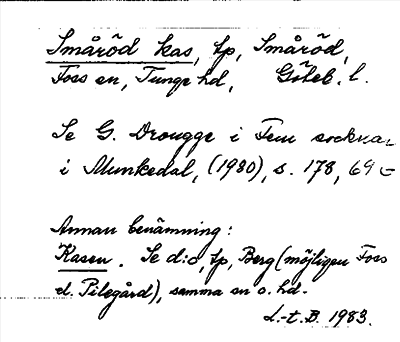 Småröd kas, tp, Småröd,
Foss sn, Tunge hd, Göteb. l.
Se G. Drougge i Fem socknar
i Munkedal, (1980), s. 178, 69
Annan benämning:
Kasen. Se d:o, tp, Berg (möjligen Foss
el. Pilegård), samma sn o. hd.
L.-t. B. 1983.